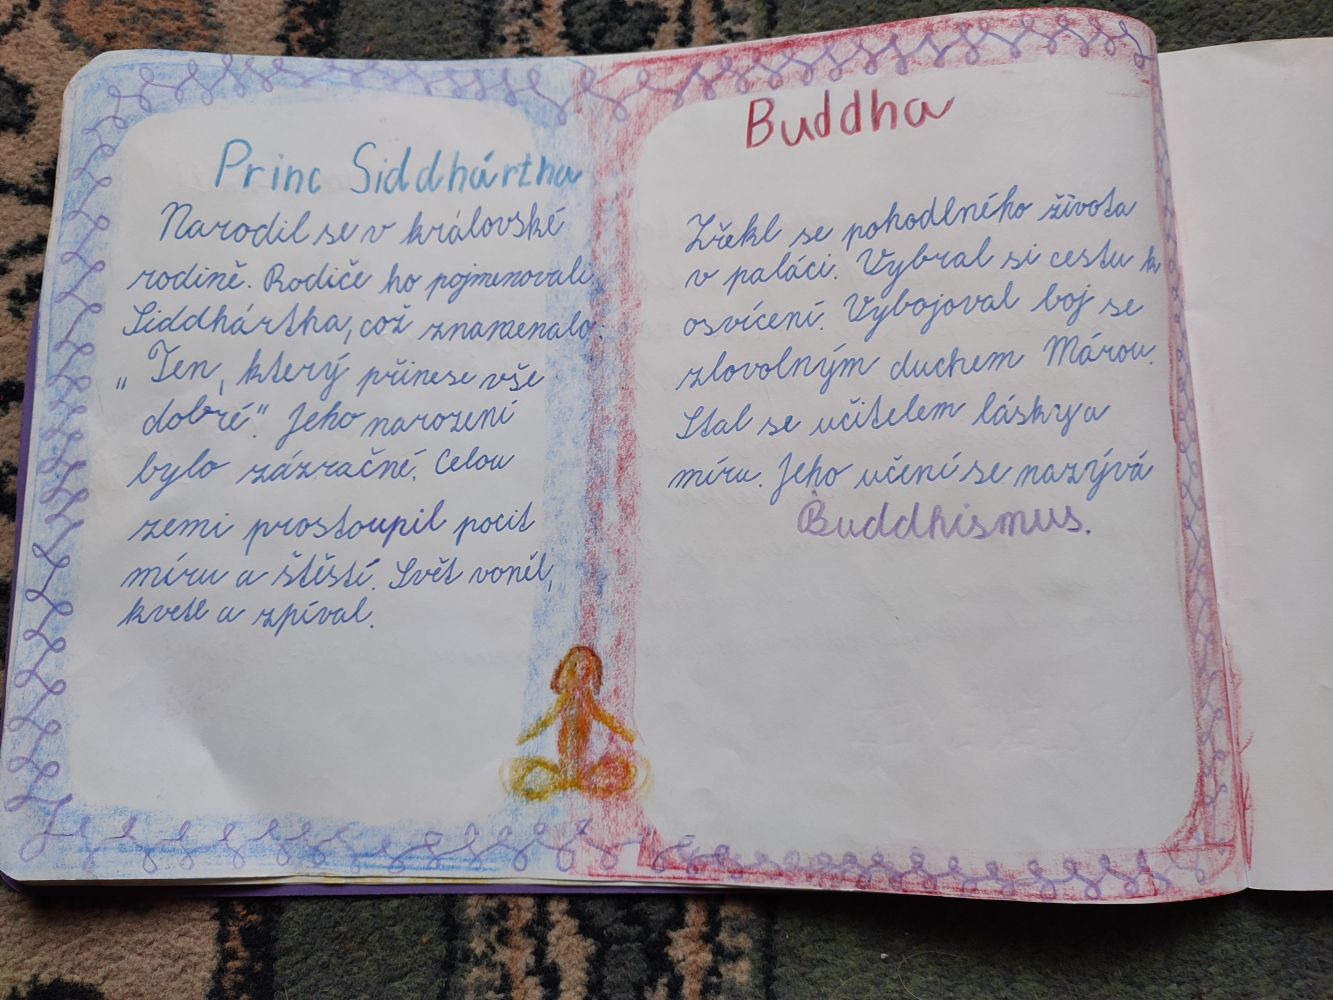 Princ Siddhártha
Narodil se v královské
rodině. Rodiče ho pojmenovali
Siddhártha, což znamenalo:
„Ten, který přinese vše
dobré“. Jeho narození
bylo zázračné. Celou
zemi prostoupil pocit
míru a štěstí. Svět voněl,
kvetl a zpíval.
Buddha
Zřekl se pohodlného života
v paláci. Vybral si cestu k
osvícení. Vybojoval boj se
zlovolným duchem Márou.
Stal se učitelem lásky a
míru. Jeho učení se nazývá
Buddhismus.